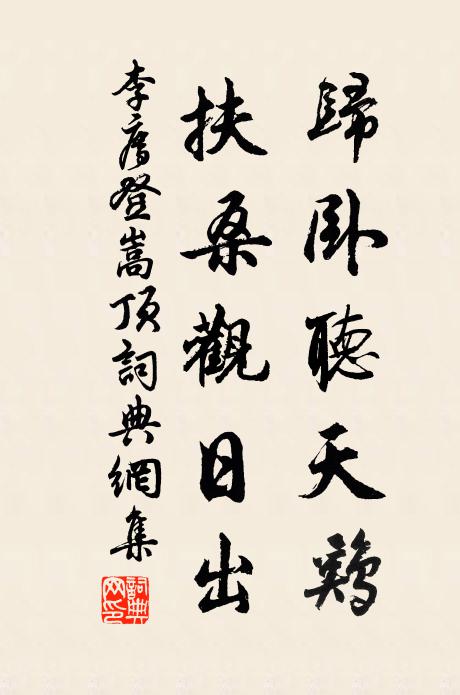 歸卧聽天鷄
扶桑觀日出
李廌登嵩頂詞典網集
詞典网印